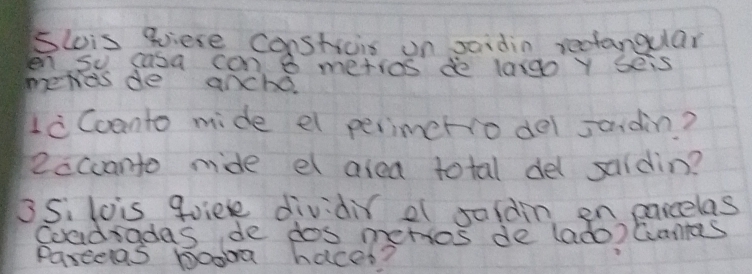 5 Luis quiere construir un jardin rectangular
en su casa con 8 metros de largo y seis
metros de ancho.
1¿Cuanto mide el perimetro del jardin?
2¿cuanto mide el area total del jardin?
3 Si luis quiere dividir el jardin en parcelas
cuadradas de dos metros de lado? cuantas
Parcelas podra hacer?